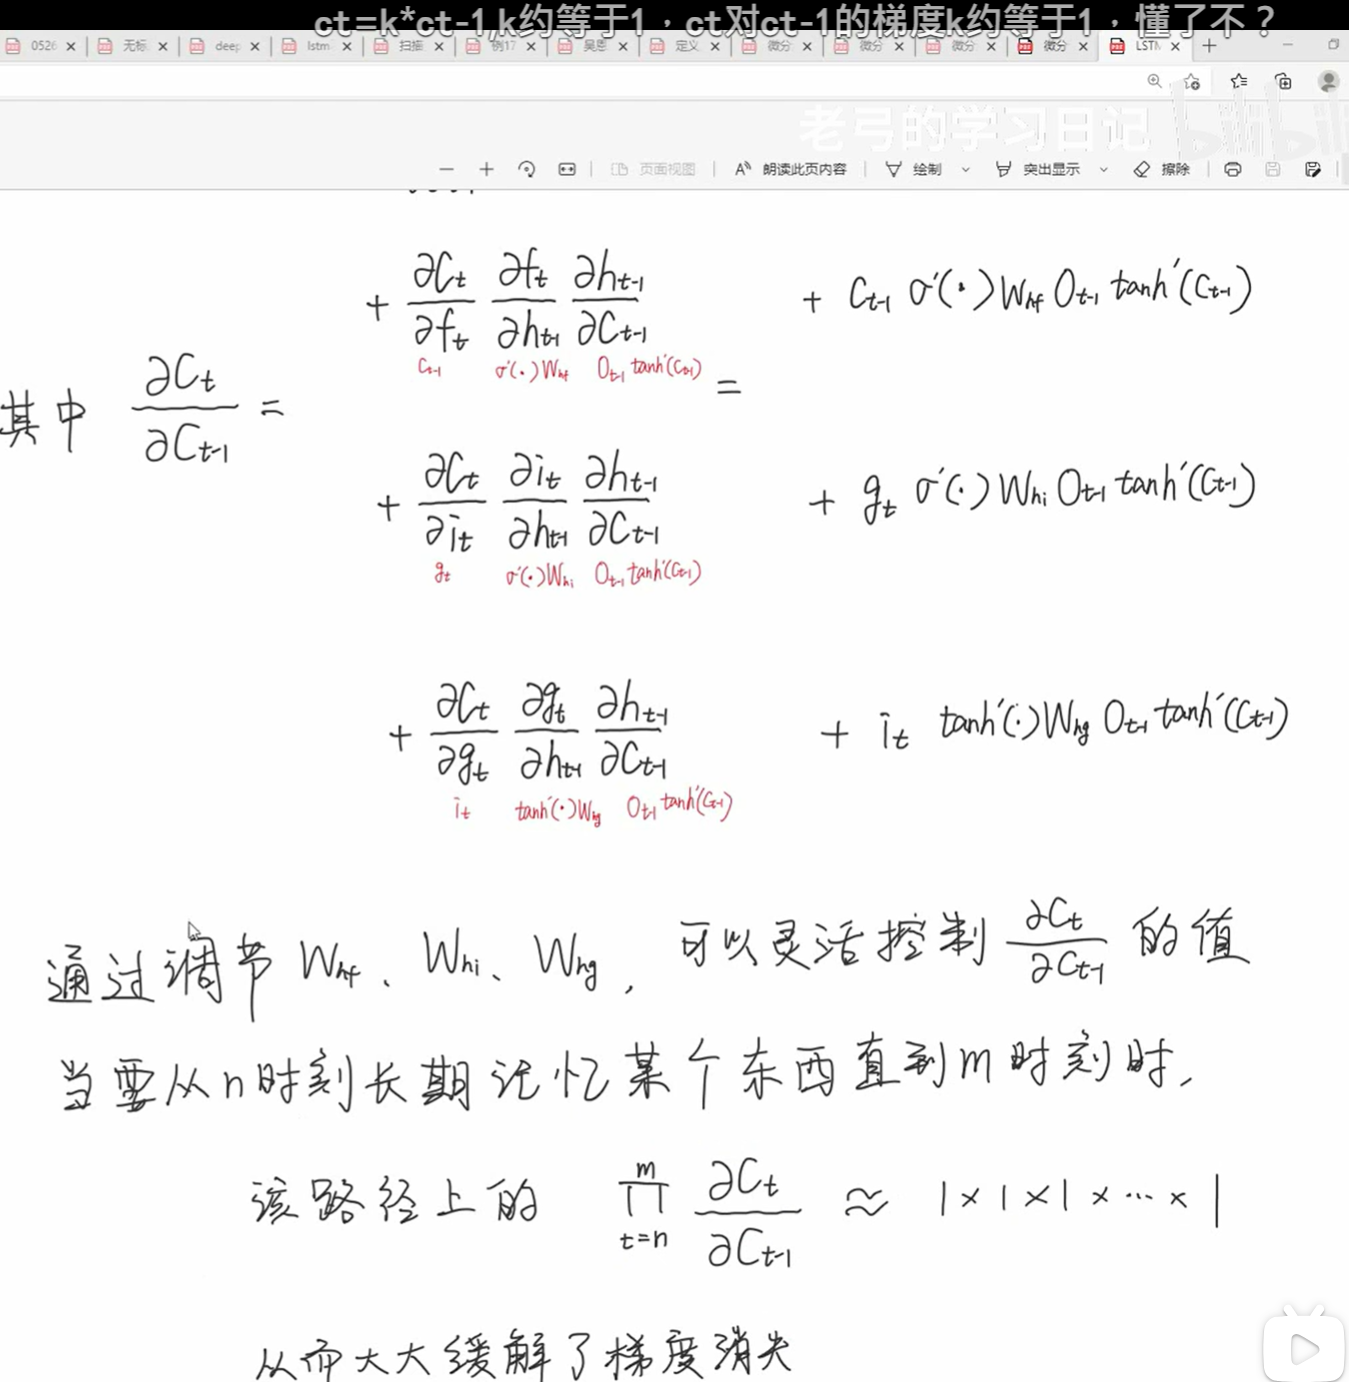 ct=k*ct-1,k约等于1，ct对ct-1的梯度k约等于1，懂了不？
0526 无标 deep lstm 扫描 例17 吴恩 定义 微分 微分 微分 微分 LSTM
老弓的学习日记 bilibili
页面视图 朗读此页内容 绘制 突出显示 擦除
+ ∂Ct/∂ft ∂ft/∂ht-1 ∂ht-1/∂Ct-1 + Ct-1 σ'(·)Whf Ot-1 tanh'(Ct-1)
Ct-1 σ'(·)Whf Ot-1 tanh'(Ct-1)
其中 ∂Ct/∂Ct-1 = =
+ ∂Ct/∂it ∂it/∂ht-1 ∂ht-1/∂Ct-1 + gt σ'(·)Whi Ot-1 tanh'(Ct-1)
gt σ'(·)Whi Ot-1 tanh'(Ct-1)
+ ∂Ct/∂gt ∂gt/∂ht-1 ∂ht-1/∂Ct-1 + it tanh'(·)Whg Ot-1 tanh'(Ct-1)
it tanh'(·)Whg Ot-1 tanh'(Ct-1)
通过调节 Whf、Whi、Whg, 可以灵活控制 ∂Ct/∂Ct-1 的值
当要从n时刻长期记忆某个东西直到m时刻时,
该路径上的 m∏t=n ∂Ct/∂Ct-1 ≈ 1×1×1×···×1
从而大大缓解了梯度消失